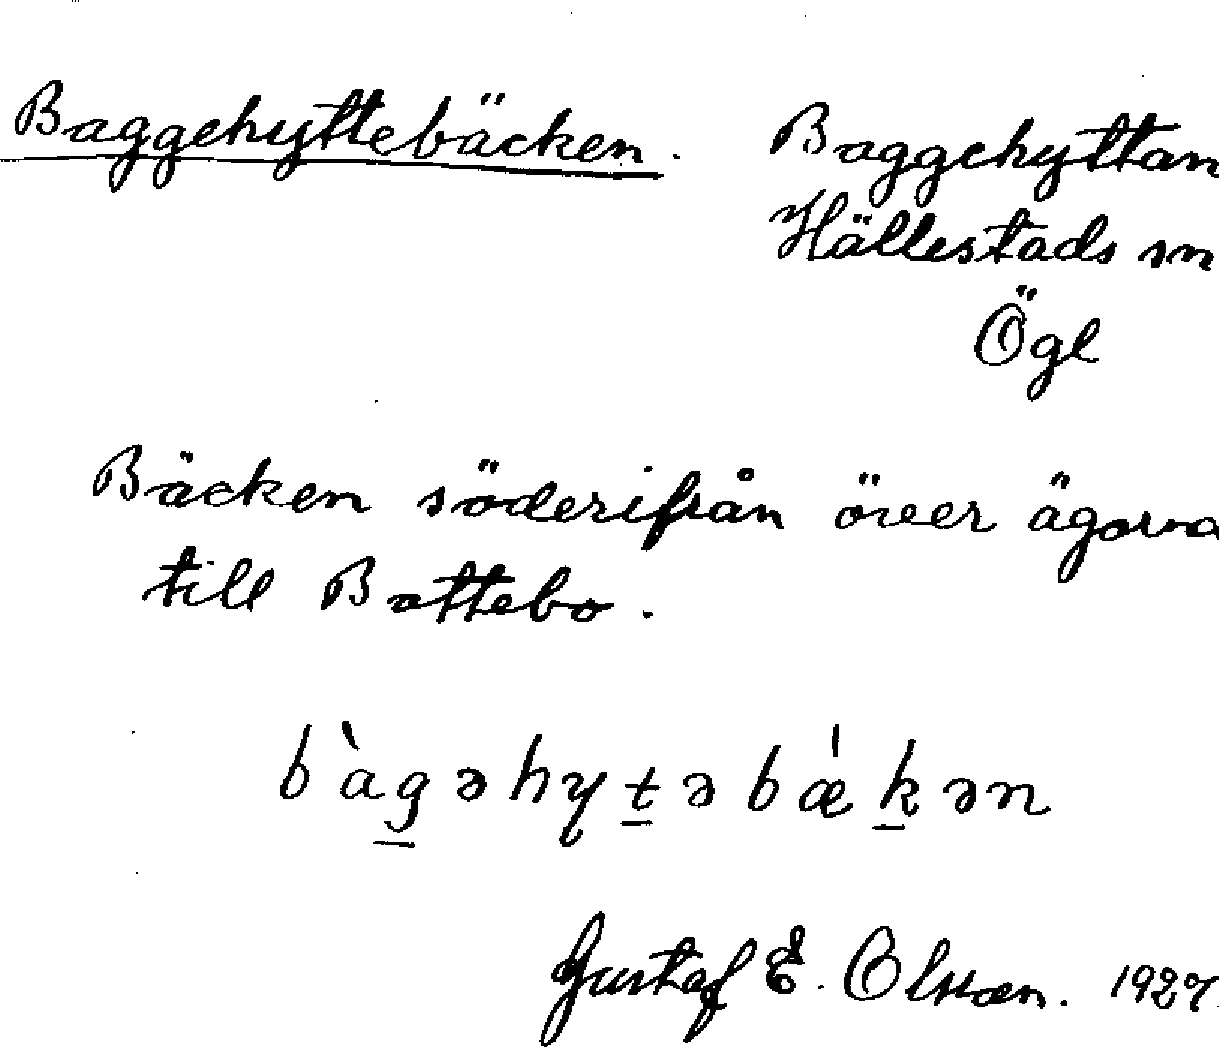 Baggehyttebäcken. Baggehyttan
Hällestads sn
Ögl
Bäcken söderifrån över ägorna
till Battebo.
b̀agəhytəbæ̍kən
Gustaf E. Olsson. 1927